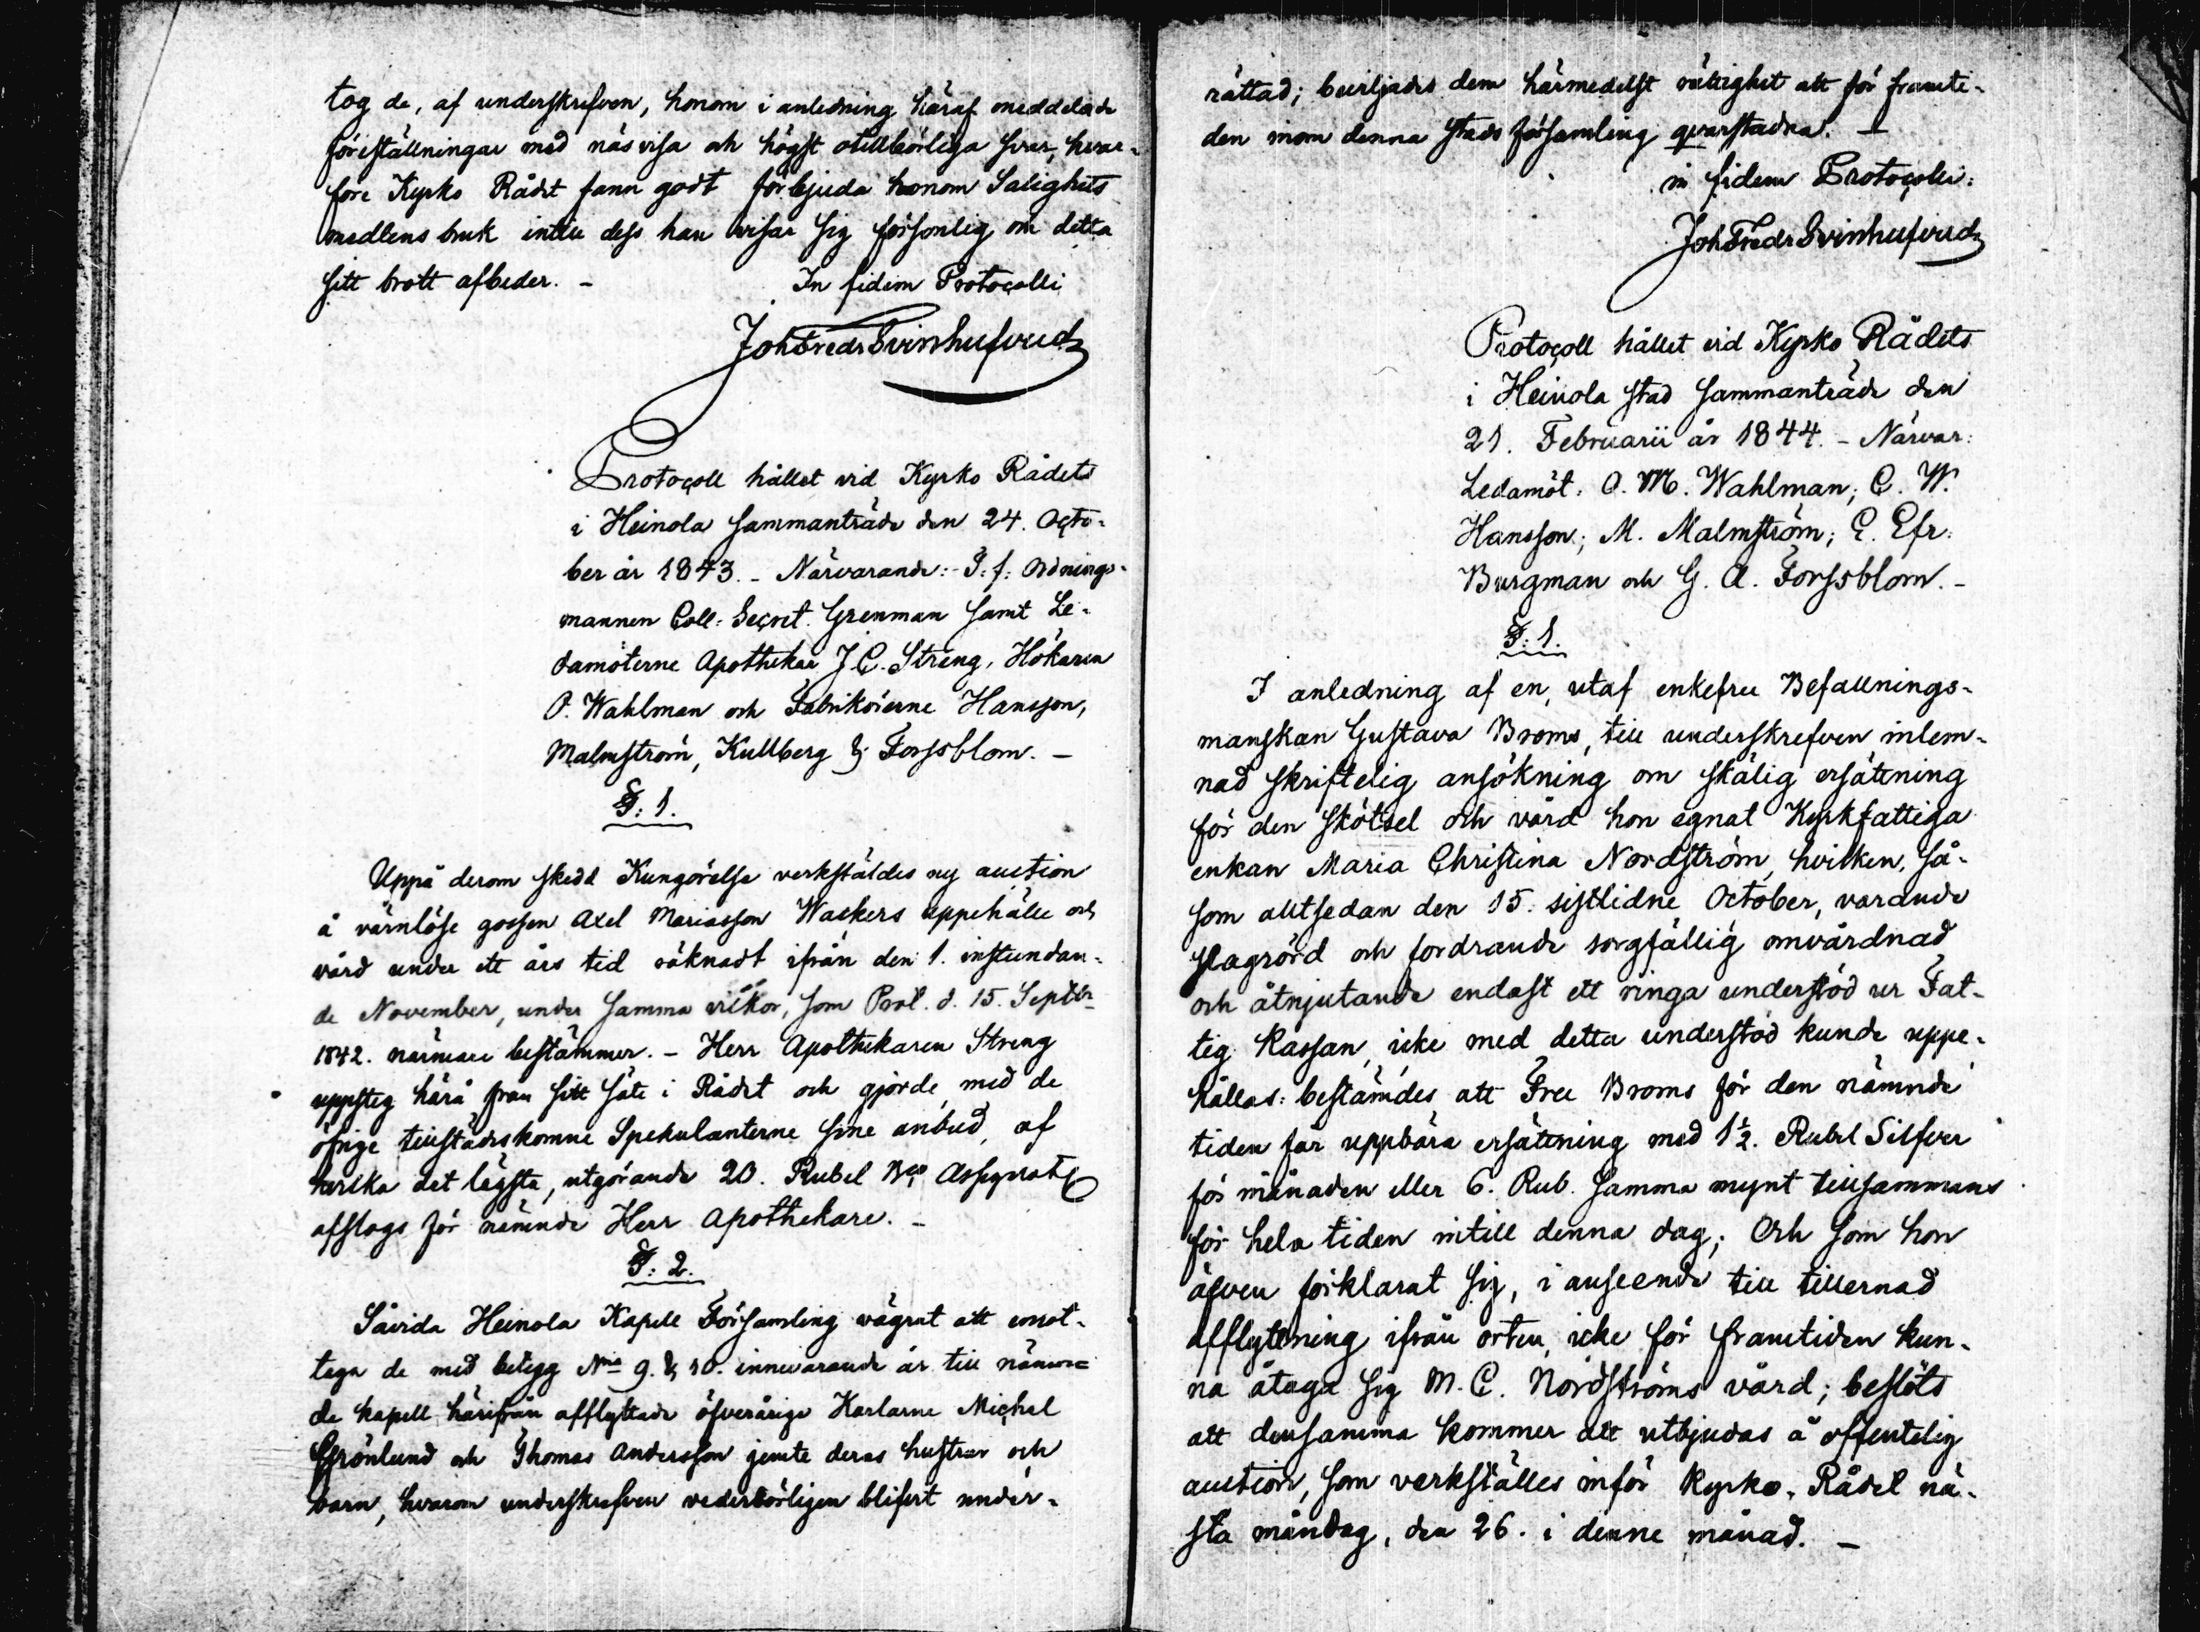 tog de, af underskrefven, honom i anledning häraf meddelade
föreställningar med näsvisa och högst otillbörliga svar, hvar-
före Kyrko Rådet fann godt förbjuda honom Salighets
medlens bruk intill dess han visar sig försonlig om detta
sitt brott afbeder. –
In fidem Protocolli
Joh Fredr Svinhufvud
Protocoll hållet vid Kyrko Rådets
i Heinola sammanträde den 24. Octo-
ber år 1843. – Närvarande: T. f. Ordnings-
mannen Coll: Secret. Grenman samt Le-
damöterne Apothekar J. C. Streng, Hökaren
O. Wahlman och Fabrikörerne Hansson,
Malmström, Kullberg & Forssblom. –
§: 1.
Uppå derom skedd Kungörelse verkstäldes ny auction
å värnlöse gossen Axel Mariasson Waekers uppehälle och
vård under ett års tid räknadt ifrån den 1. instundan-
de November, under samma vilkor, som Prot. d. 15. Septbr
1842. närmare bestämmer. – Herr Apothekaren Streng
uppsteg härå från sitt säte i Rådet och gjorde, med de
öfrige tillstädeskomne Spekulanterne sine anbud, af
hvilka det lägsta, utgörande 20. Rubel Bco Assignat
afslogs för nämnde Herr Apothekare. –
§: 2.
Såvida Heinola Kapell Församling vägrat att emot-
taga de med betygg No 9. & 10. innevarande år till nämn-
de kapell härifrån afflyttade öfverårige Karlarne Michel
Grönlund och Thomas Andersson jemte deras hustrur och
barn, hvarom underskrefven vederbörligen blifvit under-
rättad; beviljades dem härmedelst rättighet att för framti-
den inom denna stads församling qvarstadna. –
in fidem Protocolli:
Joh Fredr Svinhufvud
Protocoll hållet vid Kyrko Rådets
i Heinola stad sammanträde den
21. Februarii år 1844. – Närvar:
Ledamöt: O. M. Wahlman; C. W.
Hansson; M. Malmström; C. Efr.
Burgman och G. A. Forssblom. –
§: 1.
I anledning af en, utaf enkefru Befallnings-
manskan Gustava Broms, till underskrefven inlem-
nad skriftelig ansökning om skälig ersättning
för den skötsel och vård hon egnat Kyrkfattiga
enkan Maria Christina Nordström, hvilken, så-
som alltsedan den 15. sistlidne October, varande
slagrörd och fordrande sorgfällig omvårdnad
och åtnjutande endast ett ringa understöd ur Fat-
tig Kassan, icke med detta understöd kunde uppe-
hållas: bestämdes att Fru Broms för den nämnde
tiden får uppbära ersättning med 1½. Rubel Silfver
för månaden eller 6. Rub. samma mynt tillsammans
för hela tiden intill denna dag; Och som hon
äfven förklarat sig, i anseende till tillernad
afflyttning ifrån orten, icke för framtiden kun-
na åtaga sig M. C. Nordströms vård; beslöts
att densamma kommer att utbjudas å offentelig
auction, som verkställes inför Kyrko-Rådet nä-
sta måndag, den 26. i denne månad. –